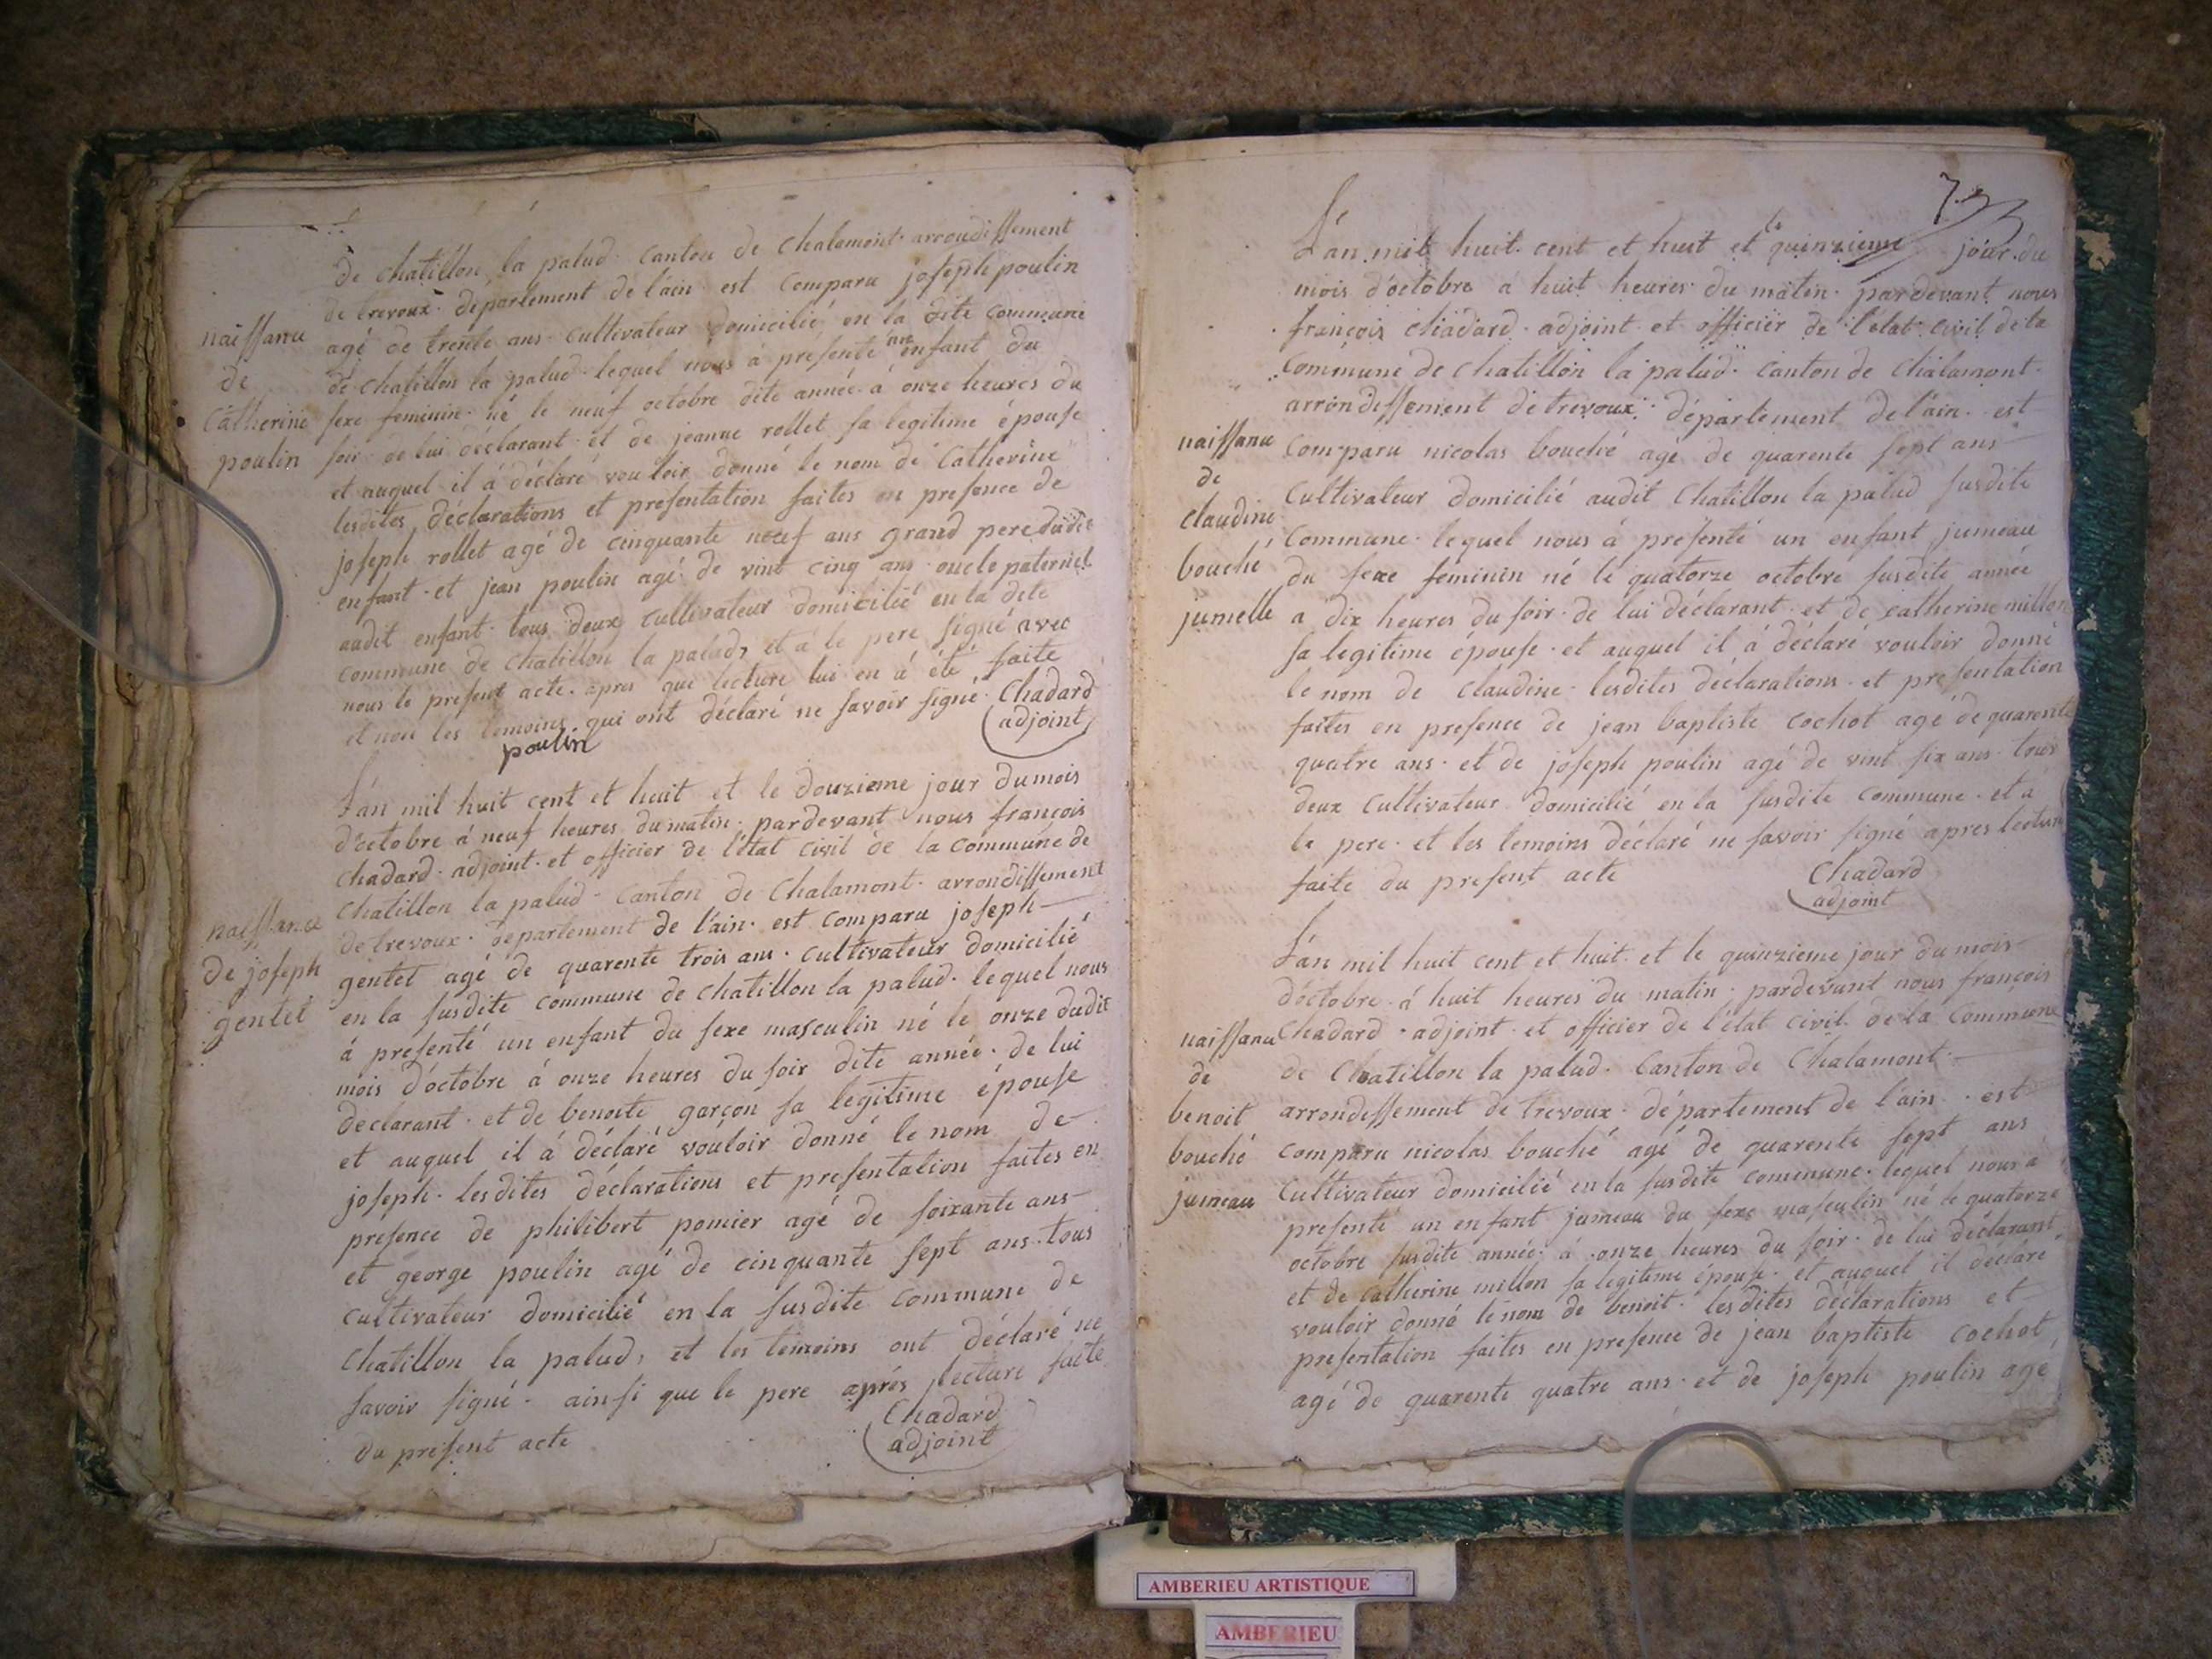 de chatillon la palud. canton de chalamont. arrondissement
de trevoux. département de l'ain est comparu joseph poulin
agé de trente ans. cultivateur domicilié en la dite commune
de chatillon la palud. lequel nous à présenté un enfant du
sexe feminin. né le neuf octobre dite année. à onze heures du
soir. de lui déclarant. et de jeanne rollet sa legitime épouse
et auquel il à déclaré vouloir donné le nom de Catherine
lesdites déclarations et presentation faites en presence de
joseph rollet agé de cinquante neuf ans grand pere dudit
enfant. et jean poulin agé de vint cinq ans. oncle paternel
audit enfant. tous deux cultivateur domicilié en la dite
commune de chatillon la palud, et à le pere signé avec
nous le present acte. apres que lecture lui en à été faite
et non les temoins qui ont déclaré ne savoir signé. Chadard
adjoint
poulin
naissance
de
Catherine
poulin
L'an mil huit cent et huit et le douzieme jour du mois
d'octobre à neuf heures du matin. pardevant nous françois
chadard. adjoint. et officier de l'état civil de la commune de
chatillon la palud. canton de Chalamont. arrondissement
de trevoux. département de l'ain. est comparu joseph
gentet agé de quarente trois ans. cultivateur domicilié
en la susdite commune de chatillon la palud. lequel nous
à presenté un enfant du sexe masculin né le onze dudit
mois d'octobre à onze heures du soir dite année. de lui
declarant. et de benoite garçon sa legitime épouse
et auquel il à déclaré vouloir donné le nom de
joseph. lesdites déclarations et presentation faites en
presence de philibert pomier agé de soixante ans
et george poulin agé de cinquante sept ans. tous
cultivateur domicilié en la susdite commune de
Chatillon la palud, et les temoins ont déclaré ne
savoir signé. ainsi que le pere après lecture faite
du présent acte
Chadard
adjoint
naissance
de joseph
gentet
73
L'an mil huit. cent et huit et le quinzieme jour. du
mois d'octobre à huit heures du matin. pardevant nous
françois chadard. adjoint. et officier de l'état civil de la
Commune de chatillon la palud. canton de chalamont.
arrondissement de trevoux. département de l'ain. est
comparu nicolas bouché agé de quarente sept ans
Cultivateur domicilié audit Chatillon la palud susdite
Commune. lequel nous à presenté un enfant jumeau
du sexe féminin né le quatorze octobre susdite année
a dix heures du soir. de lui déclarant. et de catherine millon
sa legitime épouse. et auquel il à déclaré vouloir donné
le nom de claudine. lesdites déclarations. et presentation
faites en presence de jean baptiste cochot agé de quarente
quatre ans. et de joseph poulin agé de vint six ans. tous
deux cultivateur domicilié en la susdite commune. et à
le pere. et les temoins déclaré ne savoir signé apres lecture
faite du present acte
Chadard
adjoint
naissance
de
claudine
bouché
jumelle
L'an mil huit cent et huit. et le quinzieme jour du mois
d'octobre. à huit heures du matin. pardevant nous françois
Chadard. adjoint. et officier de l'état civil de la commune
de Chatillon la palud. Canton de Chalamont.
arrondissement de trevoux. département de l'ain. est
comparu nicolas bouché agé de quarente sept ans
Cultivateur domicilié en la susdite commune. lequel nous à
presenté un enfant jumeau du sexe masculin né le quatorze
octobre susdite année. à onze heures du soir. de lui déclarant
et de catherine millon sa legitime épouse. et auquel il déclaré
vouloir donné le nom de benoit. lesdites déclarations et
presentation faites en presence de jean baptiste cochot
agé de quarente quatre ans. et de joseph poulin agé
naissance
de
benoit
bouché
jumeau
AMBERIEU ARTISTIQUE
AMBERIEU